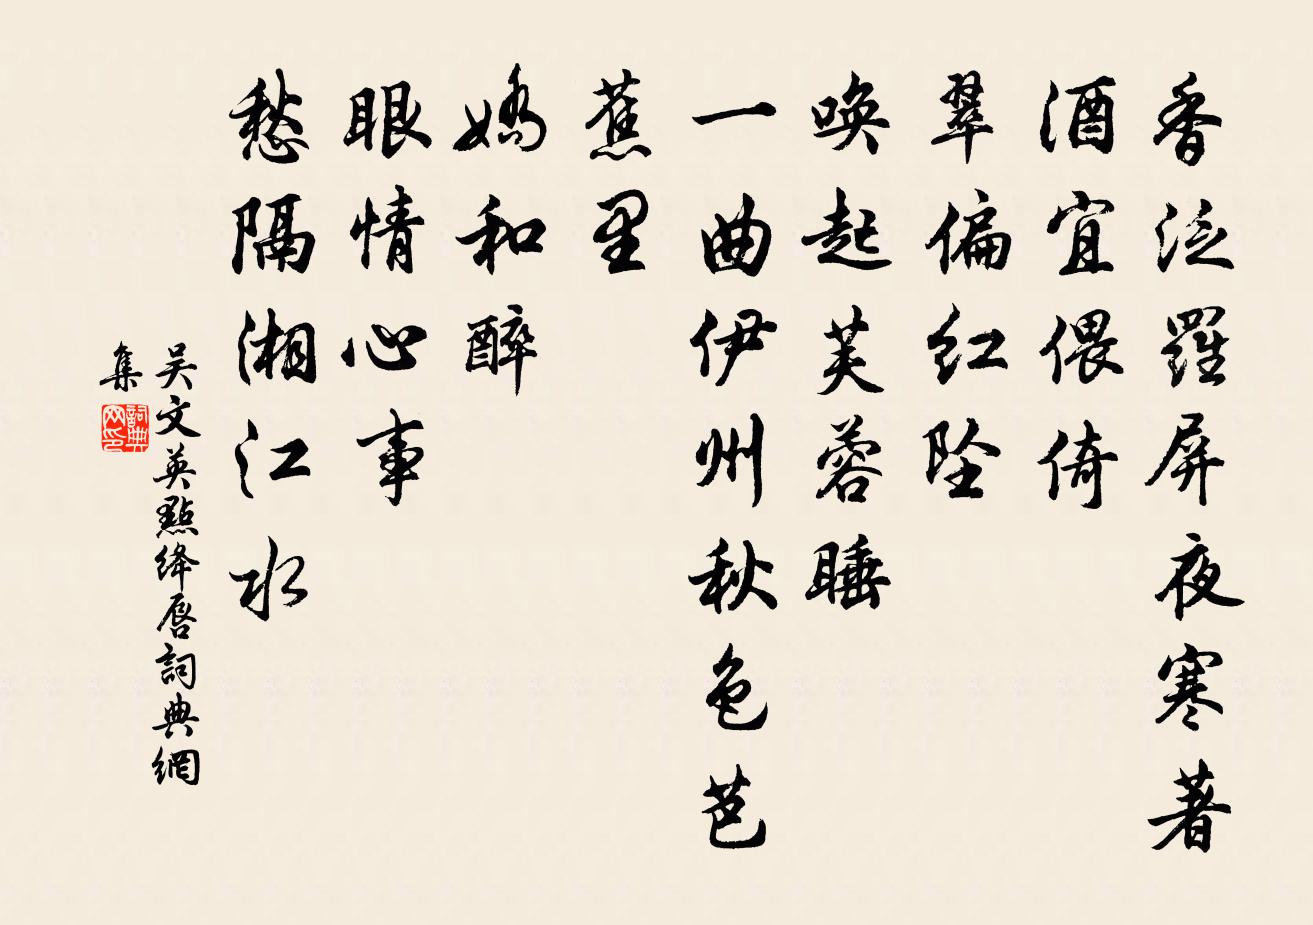 香泛羅屏夜寒著
酒宜偎倚
翠偏紅墜
喚起芙蓉睡
一曲伊州秋色芭
蕉里
嬌和醉
眼情心事
愁隔湘江水
吴文英點絳唇詞典網
集
詞典
网印